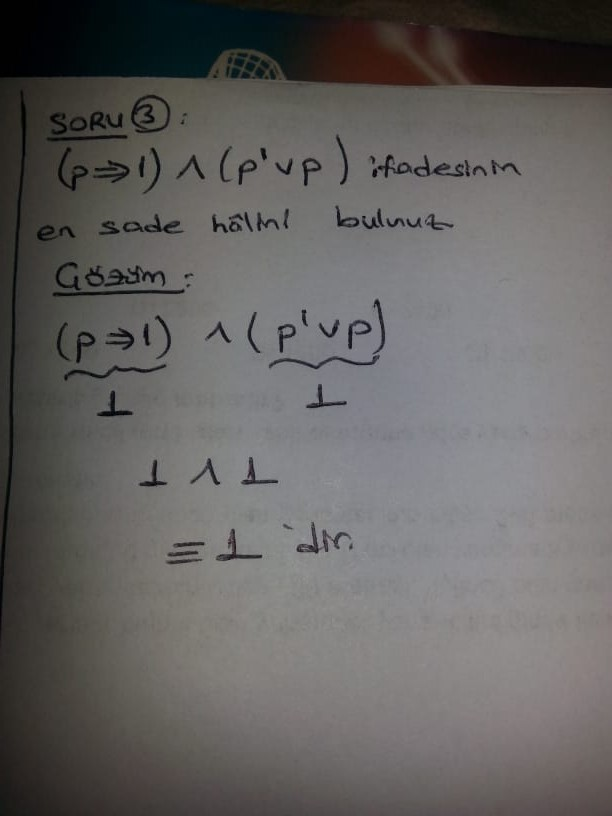 SORU ③:
(p⇒1) ∧ (p'∨p) ifadesinin
en sade hâlini bulunuz
Çözüm:
(p⇒1) ∧ (p'∨p)
1 1
1 ∧ 1
≡ 1 'dir.